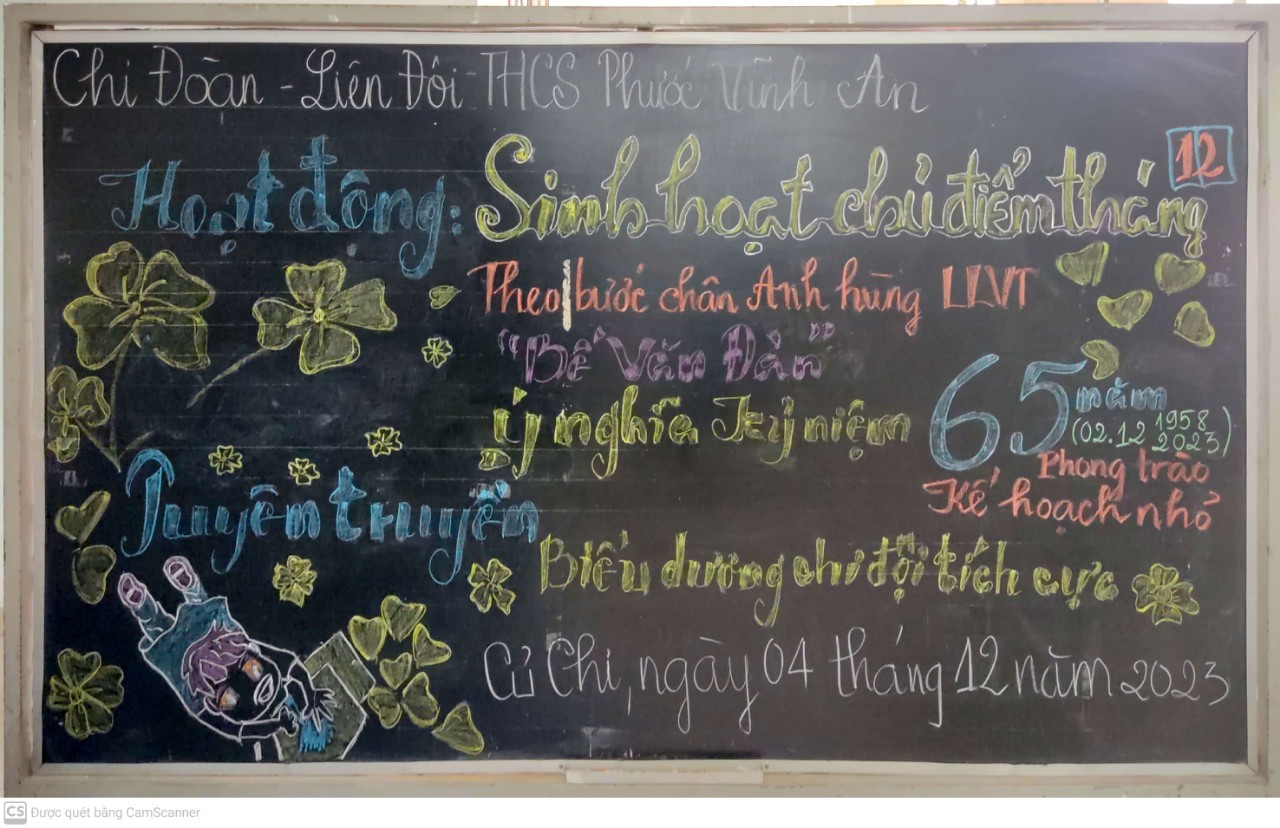 Chi Đoàn - Liên Đội THCS Phước Vĩnh An
Hoạt động: Sinh hoạt chủ điểm tháng 12
Theo bước chân Anh hùng LLVT
"Bế Văn Đàn"
Ý nghĩa Kỷ niệm 65 năm
(02.12 1958
2023)
Phong trào
Kế hoạch nhỏ
Tuyên truyền
Biểu dương chi đội tích cực
Củ Chi, ngày 04 tháng 12 năm 2023
CS Được quét bằng CamScanner